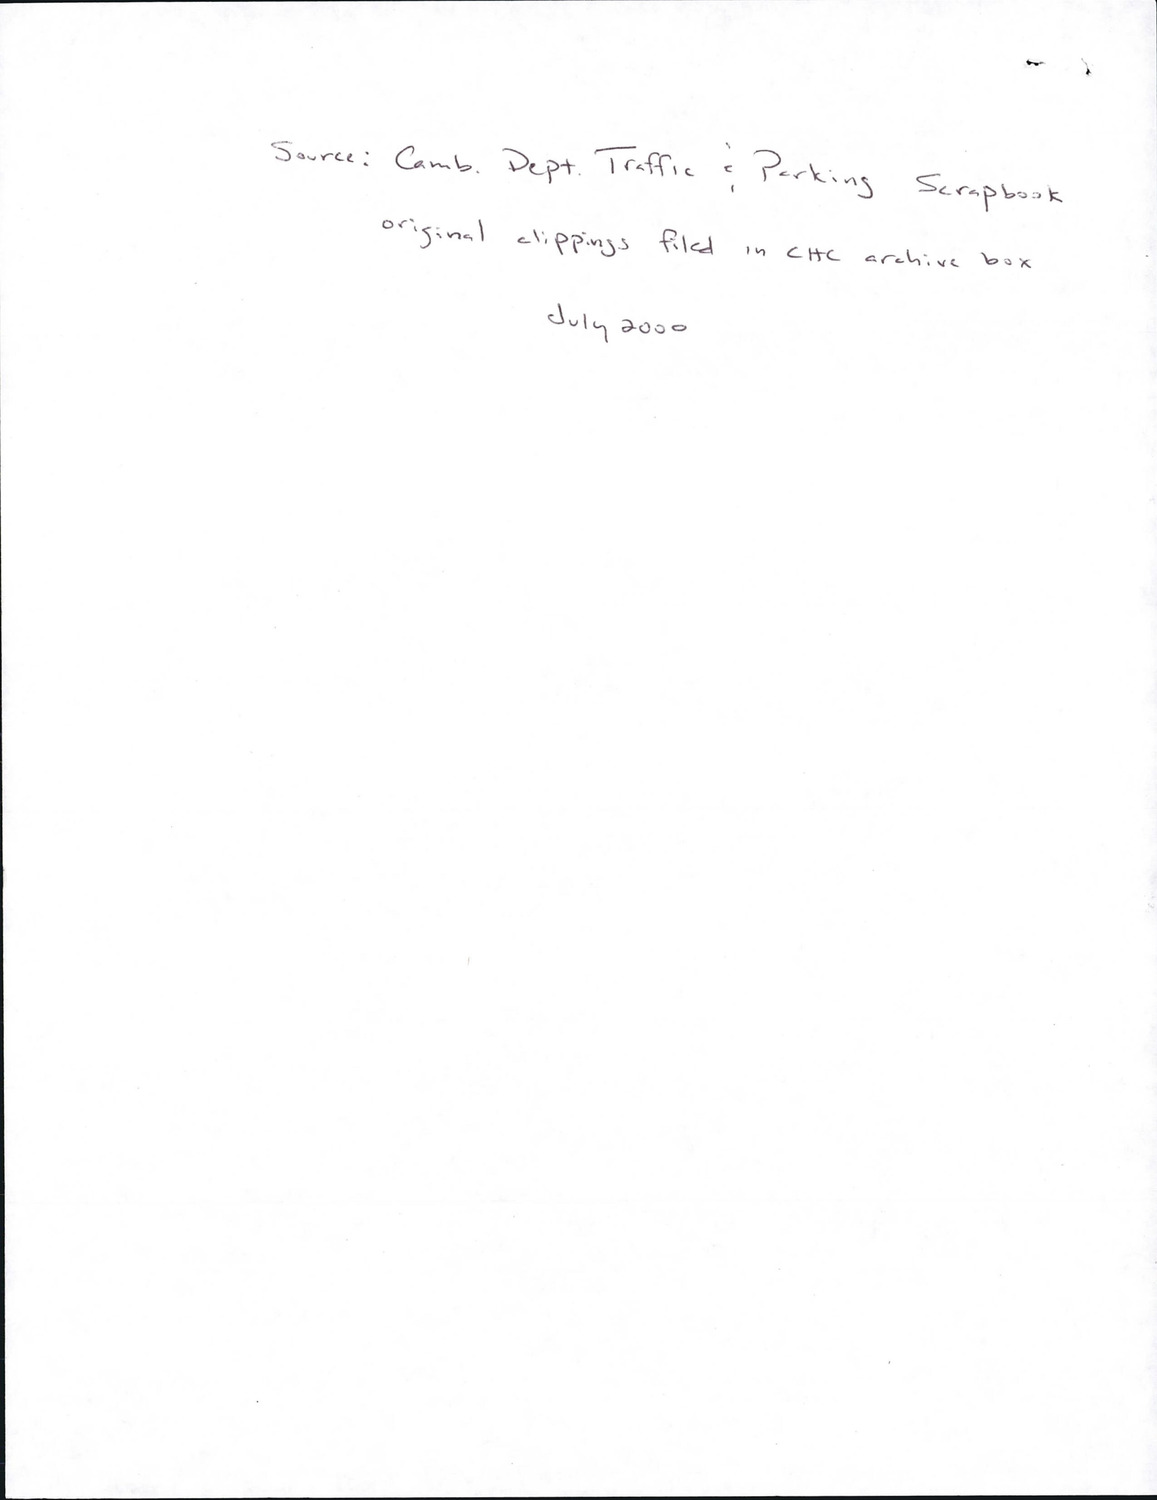 Source: Camb. Dept. Traffic & Parking Scrapbook
original clippings filed in CHC archive box
July 2000